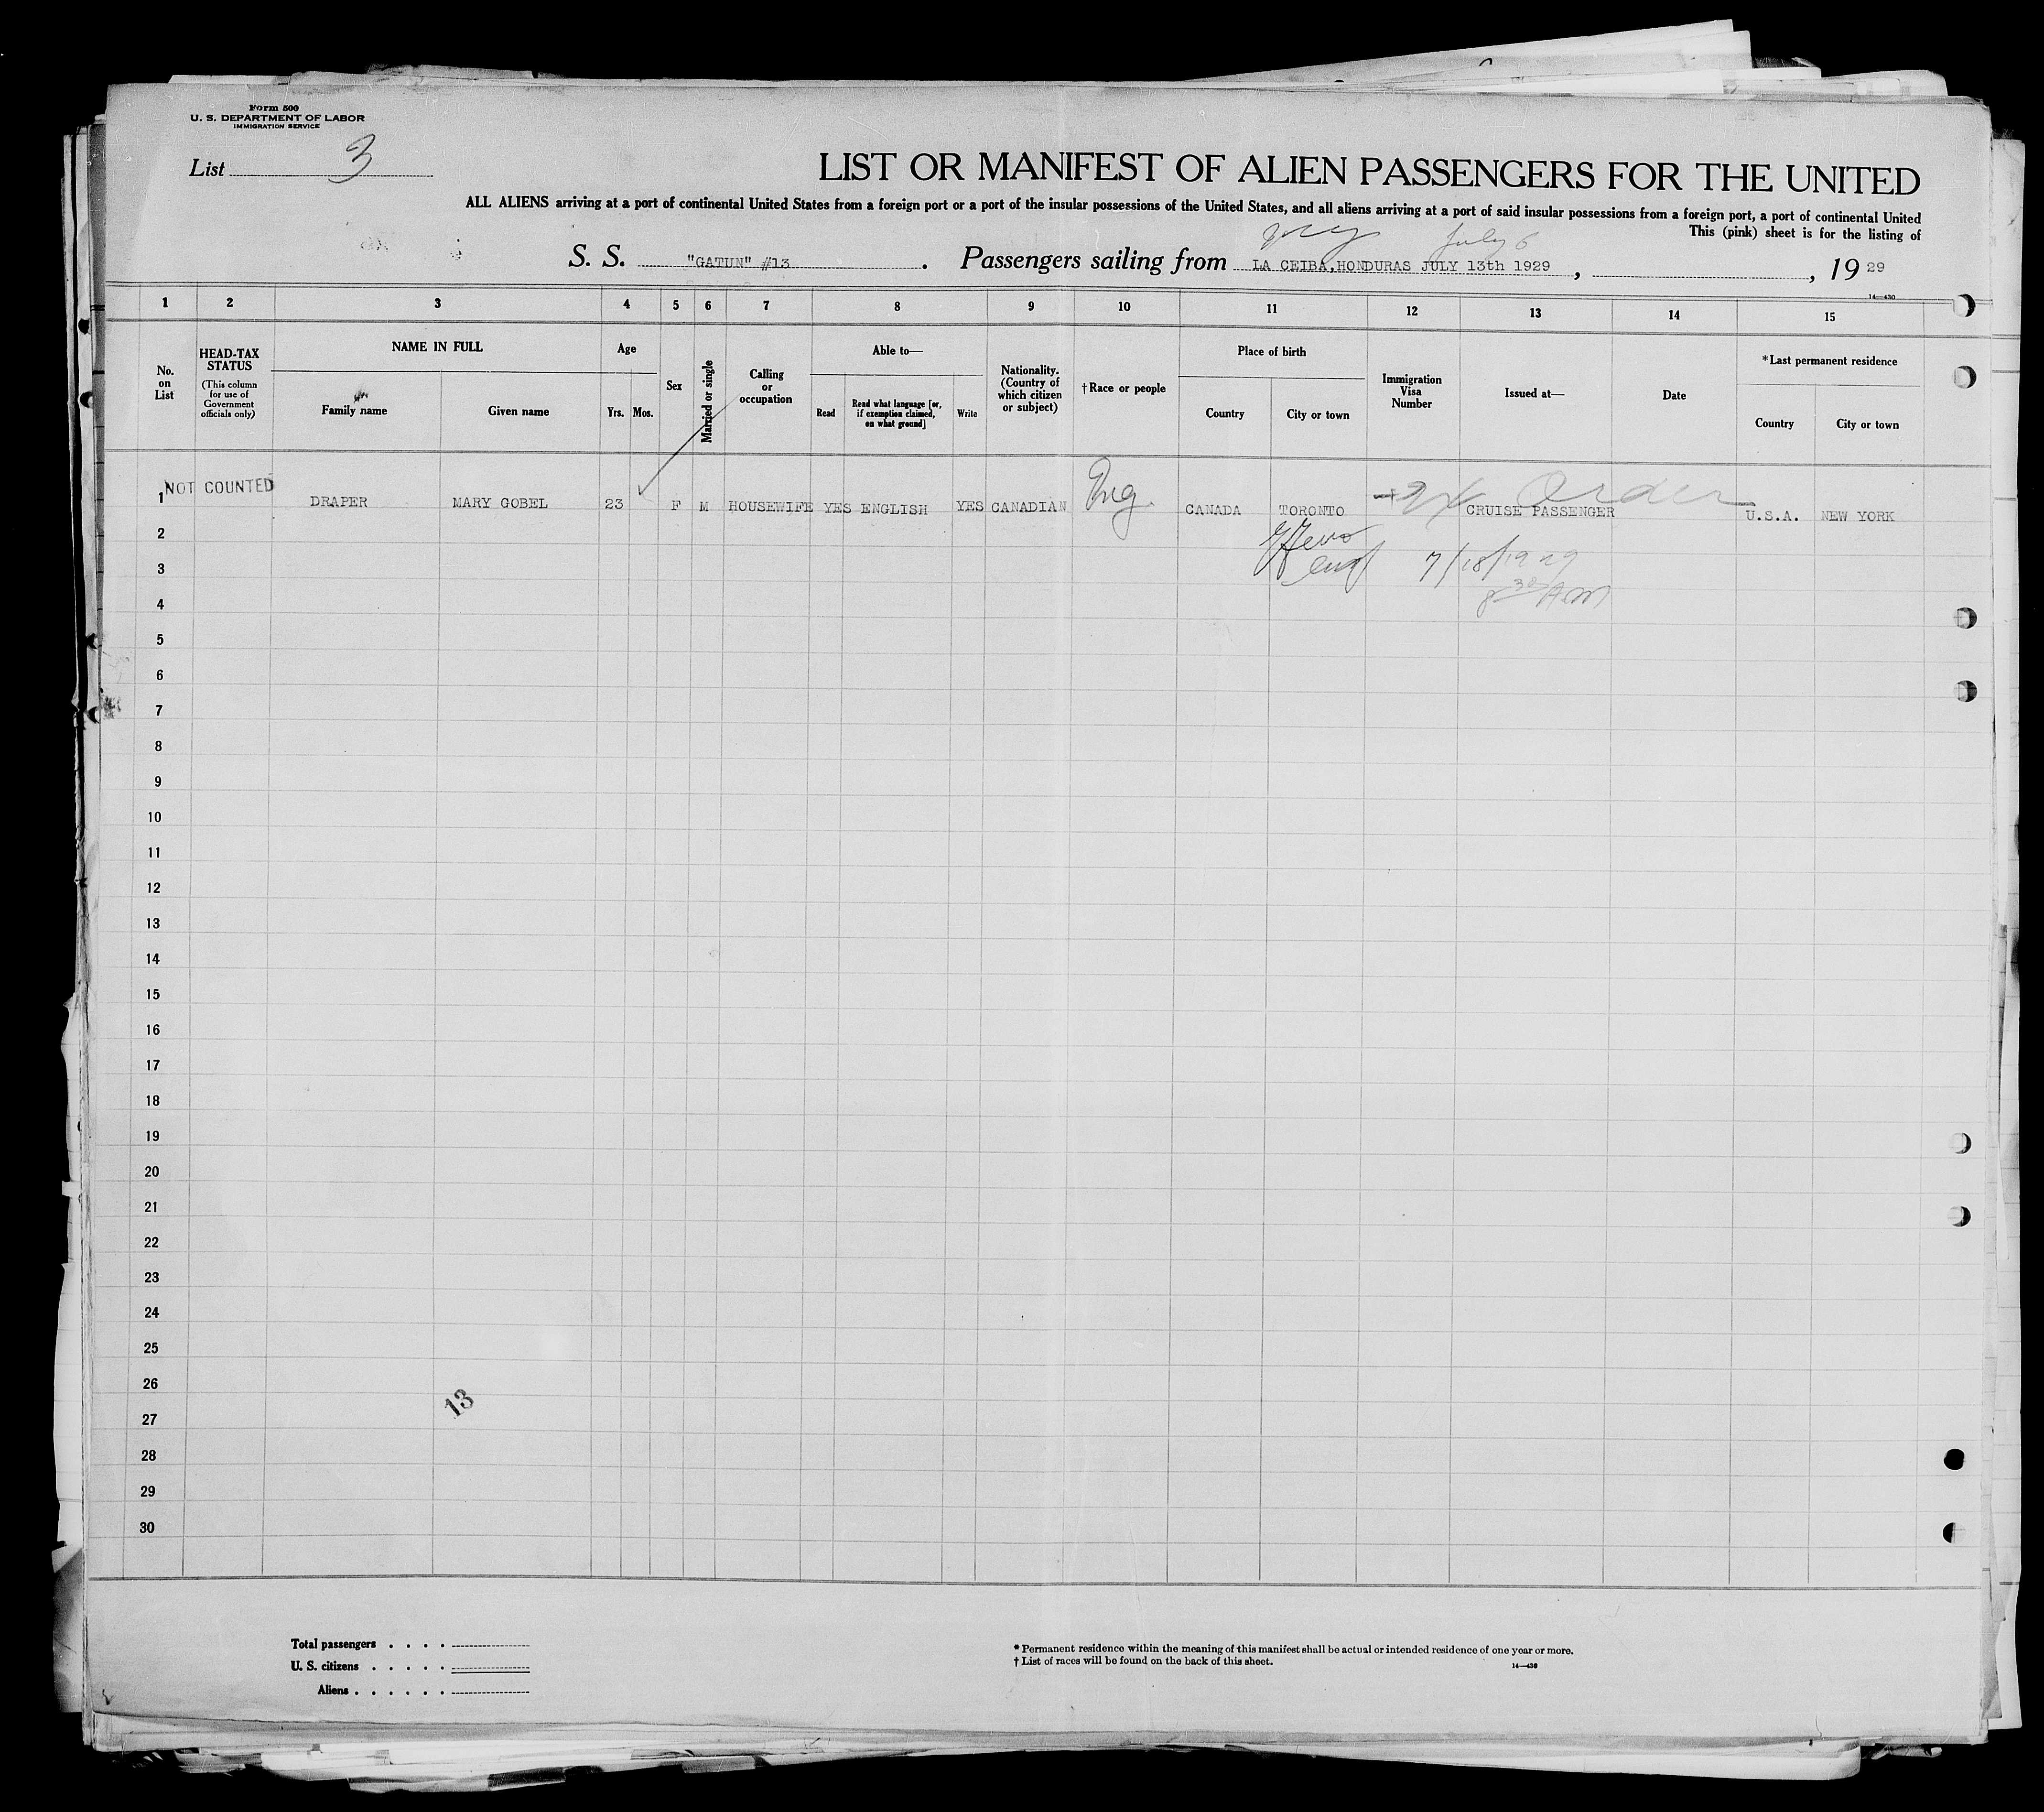 Form 500
U. S. DEPARTMENT OF LABOR
IMMIGRATION SERVICE
List 3
LIST OR MANIFEST OF ALIEN PASSENGERS FOR THE UNITED
ALL ALIENS arriving at a port of continental United States from a foreign port or a port of the insular possessions of the United States, and all aliens arriving at a port of said insular possessions from a foreign port, a port of continental United
This (pink) sheet is for the listing of
July 6
S. S. "GATUN" #13 . Passengers sailing from LA CEIBA, HONDURAS JULY 13th 1929 , , 19 29
14—430
1 2 3 4 5 6 7 8 9 10 11 12 13 14 15
No. on List
HEAD-TAX STATUS
(This column for use of Government officials only)
NAME IN FULL
Family name
Given name
Age
Yrs.
Mos.
Sex
Married or single
Calling or occupation
Able to—
Read
Read what language [or, if exemption claimed, on what ground]
Write
Nationality. (Country of which citizen or subject)
† Race or people
Place of birth
Country
City or town
Immigration Visa Number
Issued at—
Date
*Last permanent residence
Country
City or town
Order
1 NOT COUNTED DRAPER MARY GOBEL 23 F M HOUSEWIFE YES ENGLISH YES CANADIAN Eng. CANADA TORONTO CRUISE PASSENGER U.S.A. NEW YORK
2
3 7/18/1929
4 8 30 AM
5
6
7
8
9
10
11
12
13
14
15
16
17
18
19
20
21
22
23
24
25
26
13
27
28
29
30
Total passengers . . . .
U. S. citizens . . . . .
Aliens . . . . . .
* Permanent residence within the meaning of this manifest shall be actual or intended residence of one year or more.
† List of races will be found on the back of this sheet.
14—430